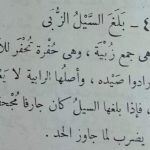 ٤ - بَلَغَ السَّيْلُ الزُّبَى
هى جمع زُبْيَة ، وهى حُفْرة تُحْفَر للأ
رادوا صَيْده ، وأصلُها الرابية لا يَعْ
، فإذا بلغها السيلُ كان جارفا مُجْحِفً
يضرب لما جاوز الحد .